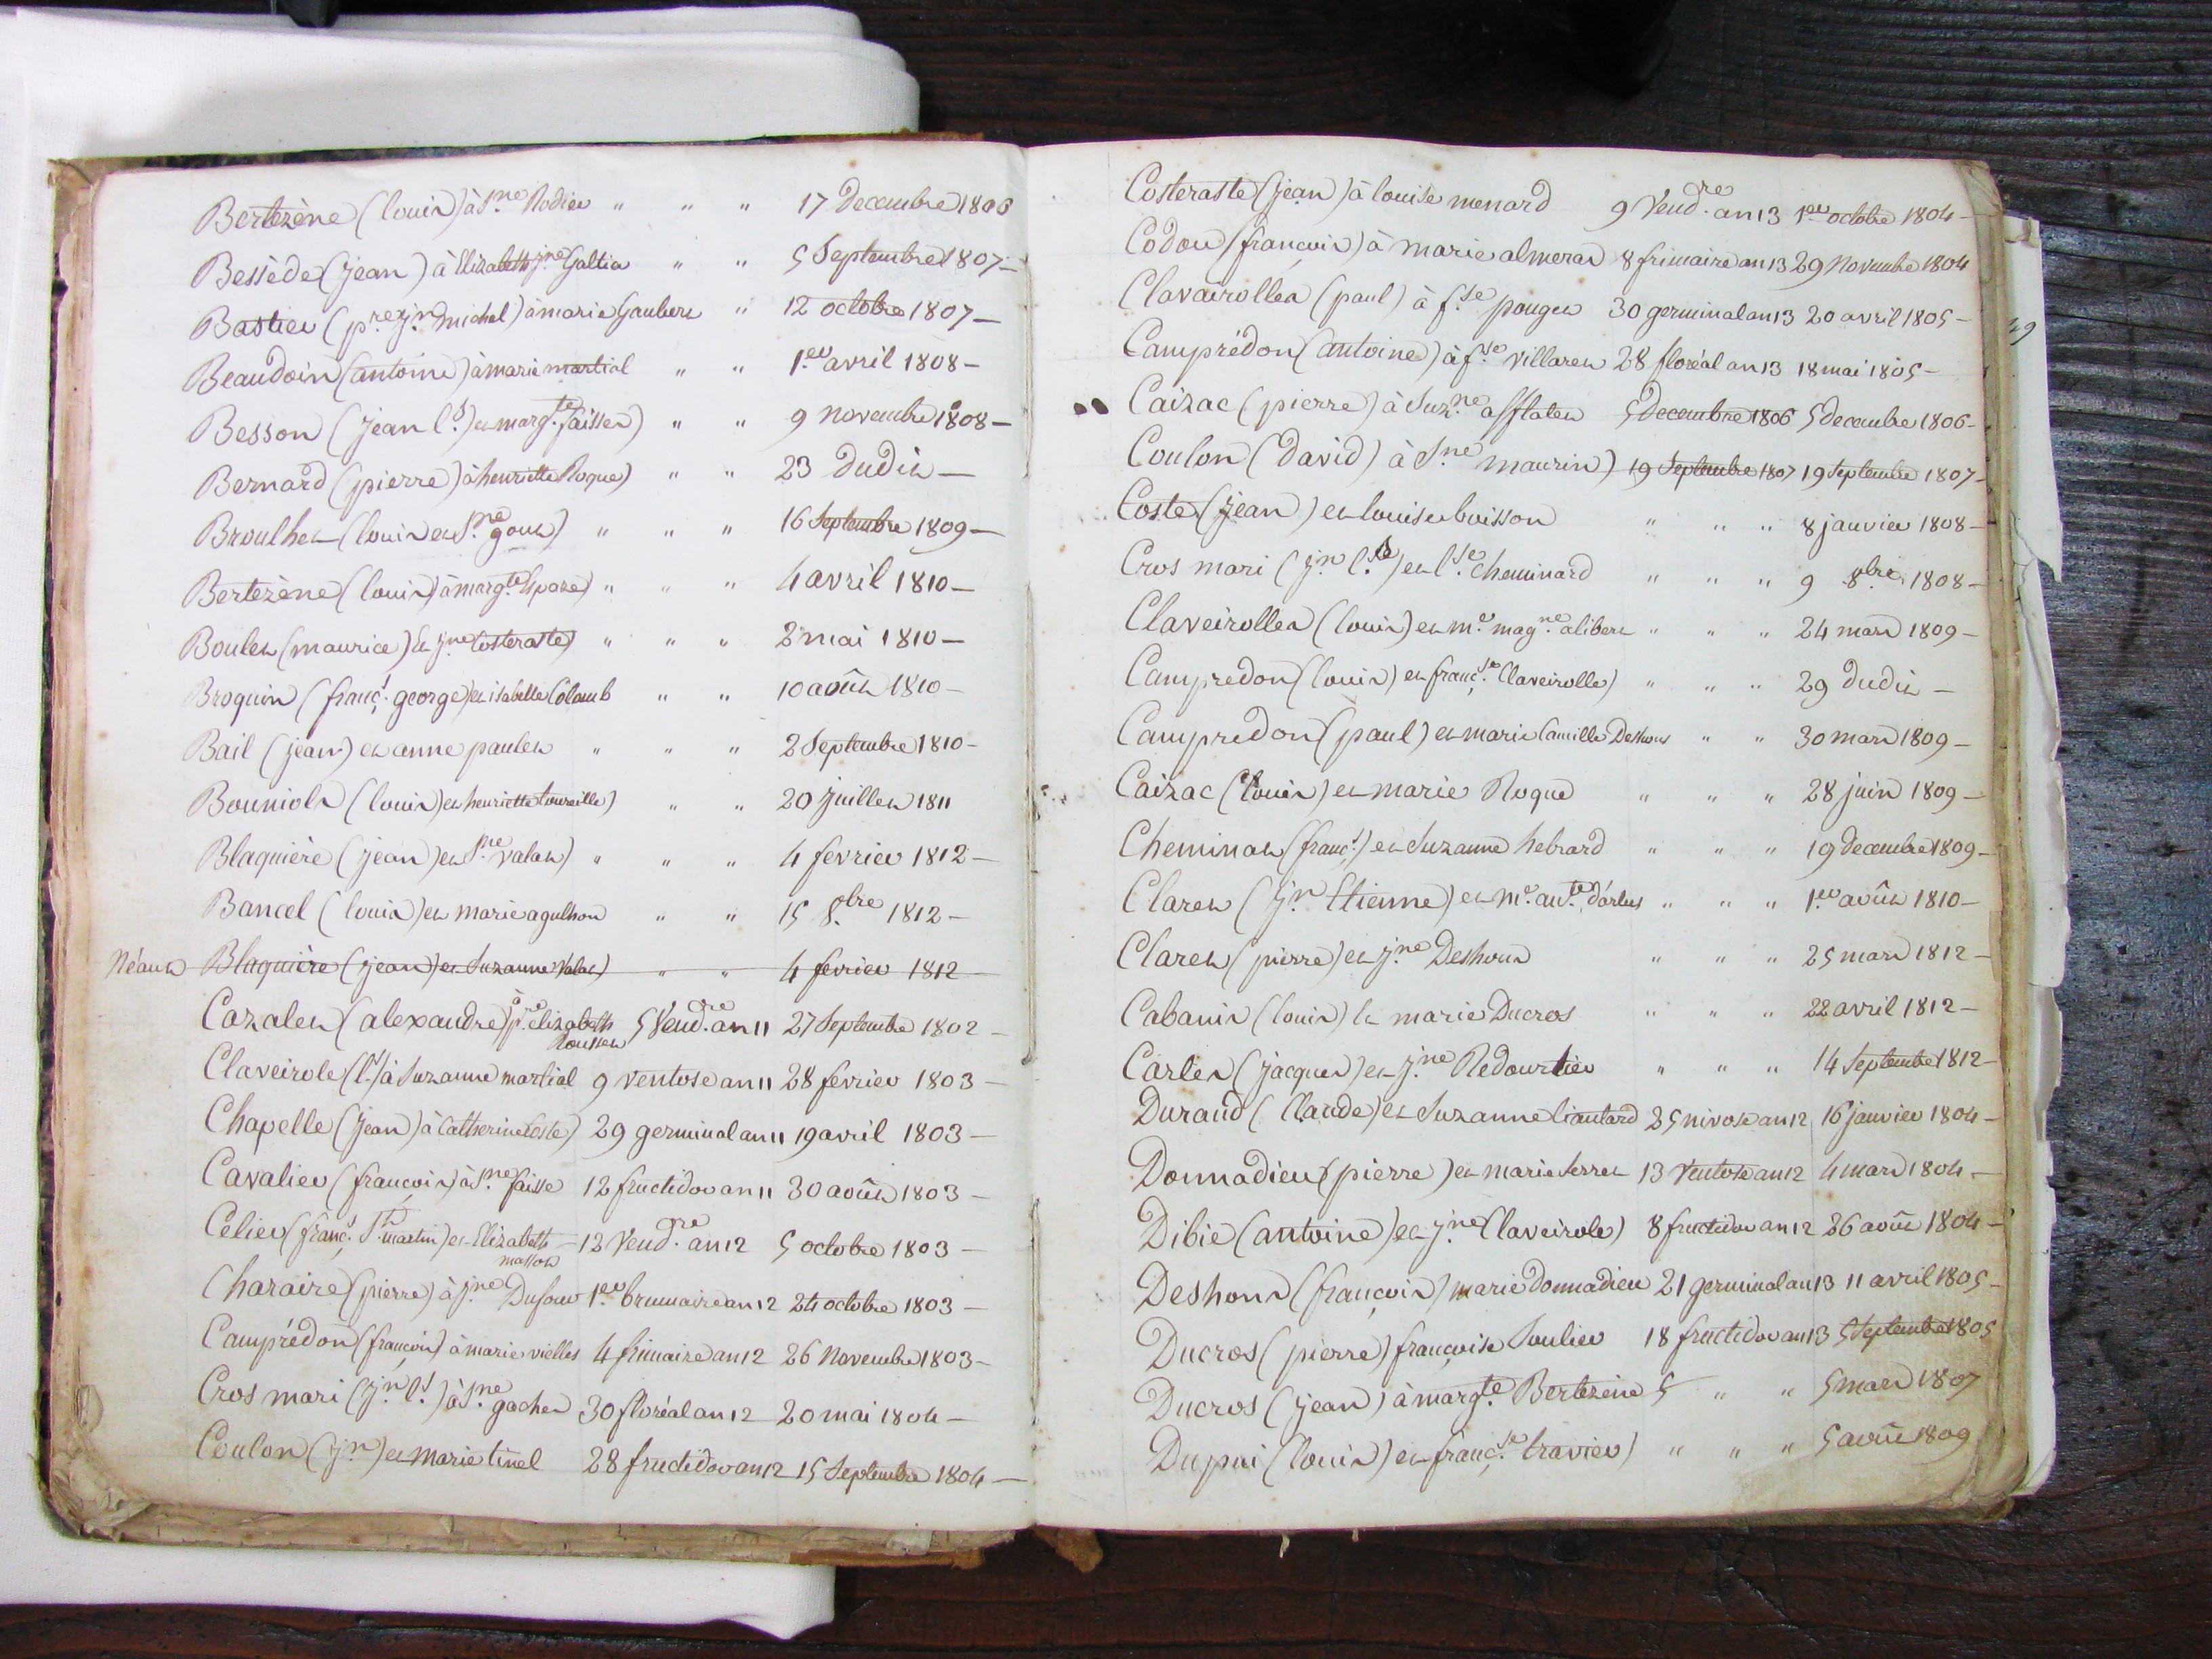 Bertezène (louis) à S.ne Rodier " " " 17 Decembre 1806
Bessède (jean) à Elizabeth j.ne Galtier " " 5 Septembre 1807 —
Bastier (p.re j.n michel) à marie Gaubert " 12 octobre 1807 —
Beaudoin (antoine) à marie martial " " 1.er avril 1808 —
Besson (jean l.s) et marg.te faisses) " " 9 novembre 1808 —
Bernard (pierre) à henriette Roque) " " 23 dudit —
Broulhet (louis et S.ne gout) " " " 16 Septembre 1809 —
Bertezène (louis) à marg.te Espaze) " " " 4 avril 1810 —
Boulet (maurice) et j.ne Costeraste) " " " 2 mai 1810 —
Broquin (franç.s george) et isabelle Colomb " " 10 août 1810 —
Bail (jean) et anne paulet " " " 2 Septembre 1810 —
Bouniols (louis) et henriette toureille) " " 20 juillet 1811
Blaquière (jean) et S.ne valat) " " " 4 fevrier 1812 —
Bancel (louis) et marie agulhon " " 15 8.bre 1812 —
Néant Blaquière (jean) et Suzanne Valat) " " 4 fevrier 1812
Cazalet (alexandre) à p.re elizabeth 5 Vend.re an 11 27 Septembre 1802 —
Rousset
Claveirole (l.s) à Suzanne martial 9 ventose an 11 28 fevrier 1803 —
Chapelle (jean) à Catherine Coste) 29 germinal an 11 19 avril 1803 —
Cavalier (françois) à S.ne faisse 12 fructidor an 11 30 août 1803 —
Celier (franç.s S.t martin) et Elizabeth — 12 Vend.re an 12 5 octobre 1803 —
massot
Charaire (pierre) à j.ne Dufour 1.er brumaire an 12 24 octobre 1803 —
Camprédon (françois) à marie vielles 4 frimaire an 12 26 Novembre 1803 —
Cros mari (j.n l.s) à S.ne gaches 30 floréal an 12 20 mai 1804 —
Coulon (j.n) et marie tinel 28 fructidor an 12 15 Septembre 1804 —
Costeraste (jean) à louise menard 9 Vend.re an 13 1.er octobre 1804 —
Codou (françois) à marie almeras 8 frimaire an 13 29 Novembre 1804
Clavairolles (paul) à f.se pouget 30 germinal an 13 20 avril 1805 —
Camprédon (antoine) à f.se villaret 28 floréal an 13 18 mai 1805 —
Caizac (pierre) à Suz.ne afflatet 5 Decembre 1806 5 decembre 1806 —
Coulon (David) à S.ne maurin) 19 Septembre 1807 19 Septembre 1807 —
Coste (jean) et louise buisson " " " 8 janvier 1808 —
Cros mari (j.n l.s) et l.se cheminard " " " 9 8.bre 1808 —
Claveirolles (louis) et m.e mag.ne alibert " " " 24 mars 1809 —
Campredon (louis) et franç.se Claveirolle) " " " 29 dudit —
Campredon (paul) et marie Camille Deshons " " 30 mars 1809 —
Caizac (louis) et marie Roque " " " 28 juin 1809 —
Cheminat (franç.s) et Suzanne hebrard " " " 19 decembre 1809 —
Claret (j.n Etienne) et m.e ant.te d'arlus " " " 1.er août 1810 —
Claret (pierre) et j.ne Deshons " " " 25 mars 1812 —
Cabanis (louis) et marie Ducros " " " 22 avril 1812 —
Carles (jacques) et j.ne Redourtier " " " 14 Septembre 1812 —
Durand (Claude) et Suzanne liautard 25 nivose an 12 16 janvier 1804 —
Donnadieu (pierre) et marie Serret 13 Ventose an 12 4 mars 1804 —
Dibie (antoine) et j.ne Claveirole) 8 fructidor an 12 26 août 1804 —
Deshons (françois) marie Donnadieu 21 germinal an 13 11 avril 1805 —
Ducros (pierre) françoise Soulier 18 fructidor an 13 5 Septembre 1805
Ducros (jean) à marg.te Bertezène 5 " " 5 mars 1807
Dupui (louis) et franç.se travier) " " " 5 août 1809